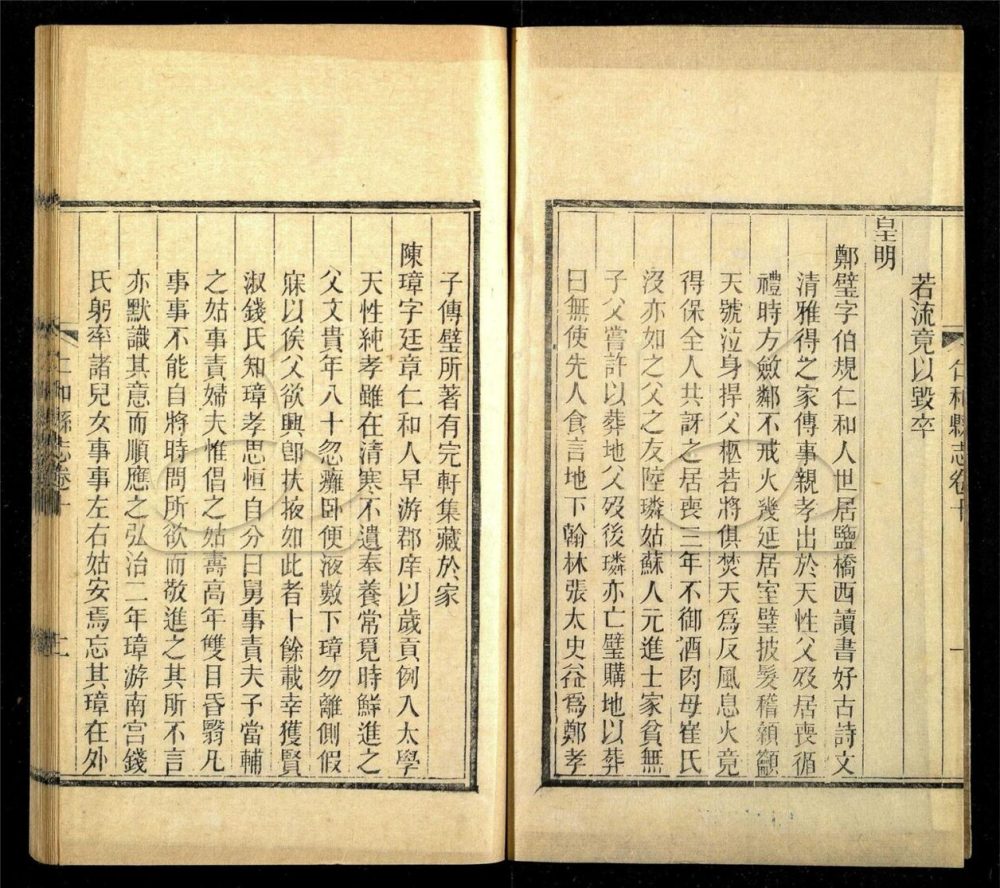 仁和縣志卷十
若流竟以毀卒
皇明
鄭璧字伯規仁和人世居鹽橋西讀書好古詩文
清雅得之家傳事親孝出於天性父歿居喪循
禮時方斂鄰不戒火幾延居室璧披髮稽顙籲
天號泣身捍父柩若將俱焚天爲反風息火竟
得保全人共訝之居喪三年不御酒肉母崔氏
沒亦如之父之友陸璘姑蘇人元進士家貧無
子父嘗許以葬地父歿後璘亦亡璧購地以葬
曰無使先人食言地下翰林張太史益爲鄭孝
子傳璧所著有完軒集藏於家
陳璋字廷章仁和人早游郡庠以歲貢例入太學
天性純孝雖在清寒不遺奉養常覓時鮮進之
父文貴年八十忽癱卧便液數下璋勿離側假
寐以俟父欲興卽扶掖如此者十餘載幸獲賢
淑錢氏知璋孝思恒自分曰舅事責夫子當輔
之姑事責婦夫惟倡之姑壽高年雙目昏翳凡
事事不能自將時問所欲而敬進之其所不言
亦默識其意而順應之弘治二年璋游南宫錢
氏躬率諸兒女事事左右姑安焉忘其璋在外
仁和縣志卷十